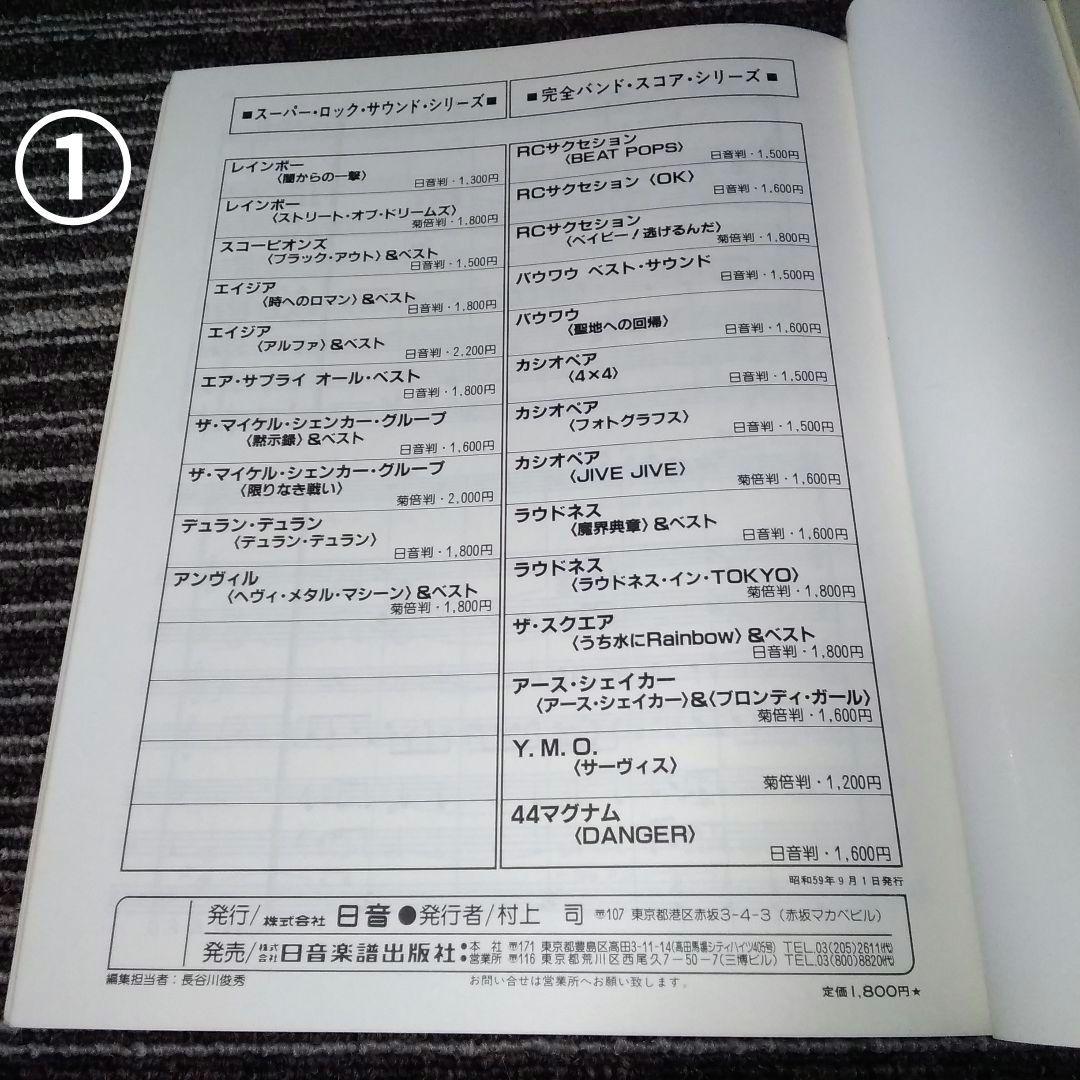 ①
■スーパー・ロック・サウンド・シリーズ■
レインボー
〈闇からの一撃〉
日音判・1,300円
レインボー
〈ストリート・オブ・ドリームズ〉
菊倍判・1,800円
スコーピオンズ
〈ブラック・アウト〉&ベスト
日音判・1,500円
エイジア
〈時へのロマン〉&ベスト
日音判・1,800円
エイジア
〈アルファ〉&ベスト
日音判・2,200円
エア・サプライ オール・ベスト
日音判・1,800円
ザ・マイケル・シェンカー・グループ
〈黙示録〉&ベスト
日音判・1,600円
ザ・マイケル・シェンカー・グループ
〈限りなき戦い〉
菊倍判・2,000円
デュラン・デュラン
〈デュラン・デュラン〉
日音判・1,800円
アンヴィル
〈ヘヴィ・メタル・マシーン〉&ベスト
菊倍判・1,800円
■完全バンド・スコア・シリーズ■
RCサクセション
〈BEAT POPS〉
日音判・1,500円
RCサクセション〈OK〉
日音判・1,600円
RCサクセション
〈ベイビー!逃げるんだ〉
菊倍判・1,800円
バウワウ ベスト・サウンド
日音判・1,500円
バウワウ
〈聖地への回帰〉
日音判・1,600円
カシオペア
〈4×4〉
日音判・1,500円
カシオペア
〈フォトグラフス〉
日音判・1,500円
カシオペア
〈JIVE JIVE〉
菊倍判・1,600円
ラウドネス
〈魔界典章〉&ベスト
日音判・1,600円
ラウドネス
〈ラウドネス・イン・TOKYO〉
菊倍判・1,800円
ザ・スクエア
〈うち水にRainbow〉&ベスト
日音判・1,800円
アース・シェイカー
〈アース・シェイカー〉&〈ブロンディ・ガール〉
菊倍判・1,600円
Y.M.O.
〈サーヴィス〉
菊倍判・1,200円
44マグナム
〈DANGER〉
日音判・1,600円
昭和59年9月1日発行
発行/株式会社 日音●発行者/村上 司 〒107 東京都港区赤坂3-4-3(赤坂マカベビル)
発売/株式会社日音楽譜出版社
●本社 〒171 東京都豊島区高田3-11-14(高田馬場シティハイツ405号) TEL.03(205)2611(代)
●営業所 〒116 東京都荒川区西尾久7-50-7(三博ビル) TEL.03(800)8820(代)
編集担当者:長谷川俊秀
お問い合せは営業所へお願い致します。
定価1,800円★